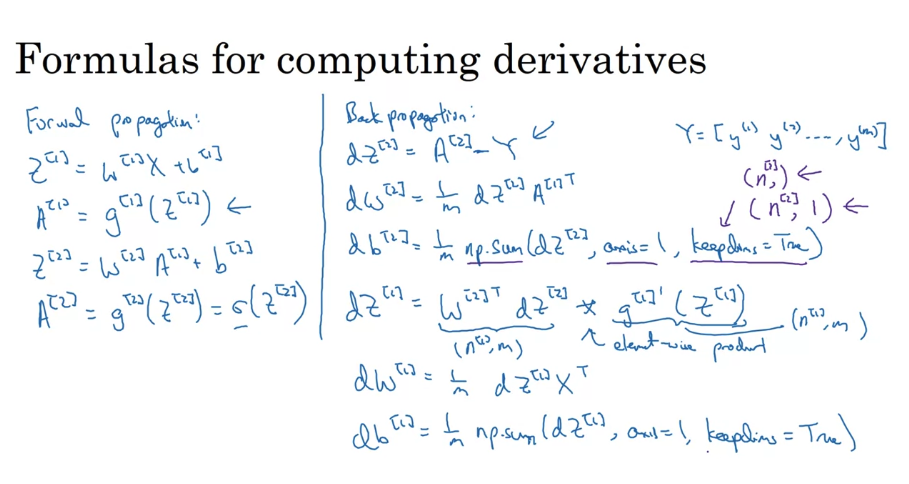 Formulas for computing derivatives
Forwal propagation:
Z^[1] = W^[1]X + b^[1]
A^[1] = g^[1](Z^[1]) ←
Z^[2] = W^[2] A^[1] + b^[2]
A^[2] = g^[2](Z^[2]) = σ(Z^[2])
Back propagation:
dZ^[2] = A^[2] - Y ↙
Y = [y^(1) y^(2) ..., y^(m)]
dW^[2] = 1/m dZ^[2] A^[1]T
(n^[2],) ←
↙ (n^[2], 1) ←
db^[2] = 1/m np.sum(dZ^[2], axis=1, keepdims=True)
dZ^[1] = W^[2]T dZ^[2] * g^[1]'(Z^[1])
(n^[1], m) element-wise product (n^[1], m)
dW^[1] = 1/m dZ^[1] X^T
db^[1] = 1/m np.sum(dZ^[1], axis=1, keepdims=True)